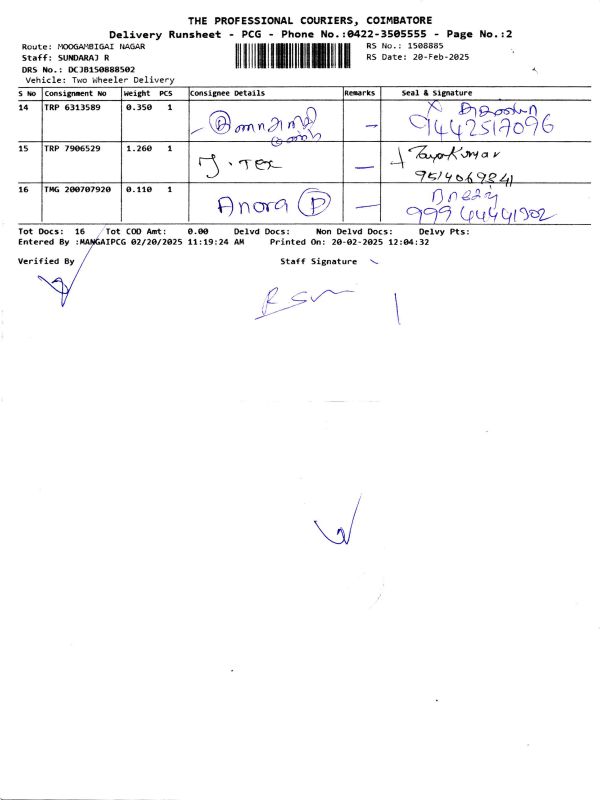 THE PROFESSIONAL COURIERS, COIMBATORE
Delivery Runsheet - PCG - Phone No.:0422-3505555 - Page No.:2
Route: MOOGAMBIGAI NAGAR RS No.: 1508885
Staff: SUNDARAJ R RS Date: 20-Feb-2025
DRS No.: DCJB150888502
Vehicle: Two Wheeler Delivery
S No Consignment No Weight PCS Consignee Details Remarks Seal & Signature
14 TRP 6313589 0.350 1 — 9442517096
15 TRP 7906529 1.260 1 J. Tex — JayaKumar
9514069841
16 TMG 200707920 0.110 1 Anora P —
99944441902
Tot Docs: 16 Tot COD Amt: 0.00 Delvd Docs: Non Delvd Docs: Delvy Pts:
Entered By :MANGAIPCG 02/20/2025 11:19:24 AM Printed On: 20-02-2025 12:04:32
Verified By Staff Signature